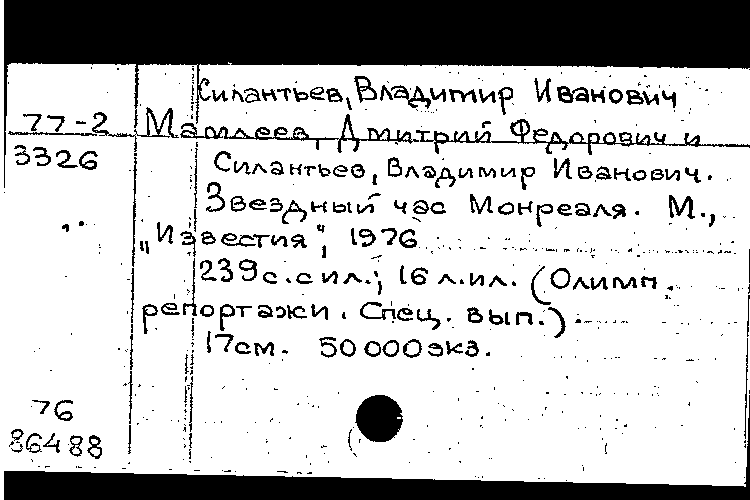 Силантьев, Владимир Иванович
77-2 Мамлеев, Дмитрий Федорович и
3326 Силантьев, Владимир Иванович.
Звездный час Монреаля. М.,
„Известия", 1976
239с. с ил.; 16 л.ил. (Олимп.
репортажи. Спец. вып.).
17см. 50 000 экз.
76
86488